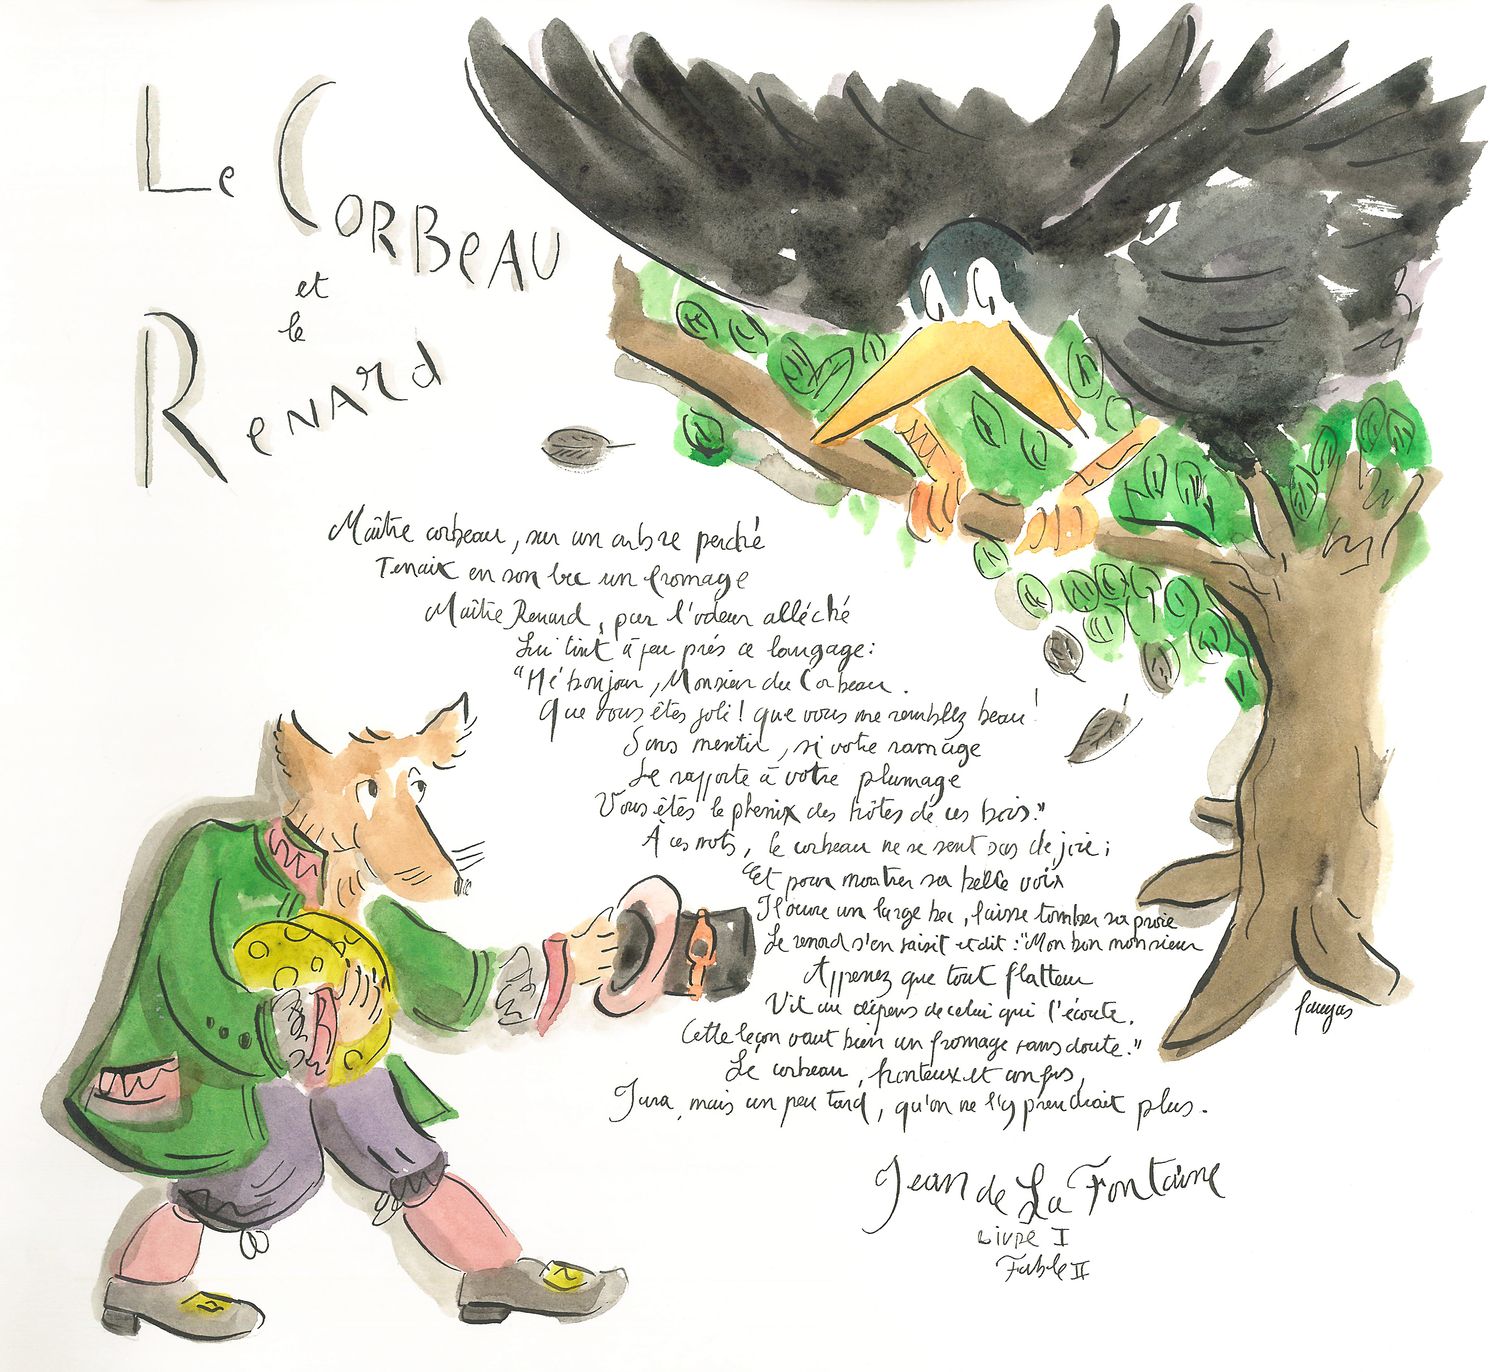 Le CORBEAU
et
le
Renard
Maître corbeau, sur un arbre perché
Tenait en son bec un fromage
Maître Renard, par l'odeur alléché
Lui tint à peu près ce langage:
"Hé bonjour, Monsieur du Corbeau.
Que vous êtes joli! que vous me semblez beau!
Sans mentir, si votre ramage
Se rapporte à votre plumage
Vous êtes le phenix des hôtes de ces bois."
À ces mots, le corbeau ne se sent pas de joie;
Et pour montrer sa belle voix
Il ouvre un large bec, laisse tomber sa proie
Le renard s'en saisit et dit: "Mon bon monsieur
Apprenez que tout flatteur
Vit au dépens de celui qui l'écoute.
Cette leçon vaut bien un fromage sans doute."
Le corbeau, honteux et confus,
Jura, mais un peu tard, qu'on ne l'y prendrait plus.
Jean de La Fontaine
Livre I
Fable II